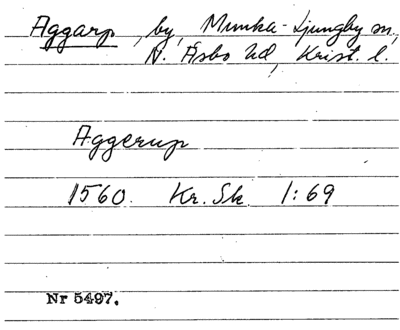 Aggarp, by, Munka-Ljungby sn,
N. Åsbo hd, Krist. l.
Aggerup
1560. Kr. Sk 1:69
Nr 5497.